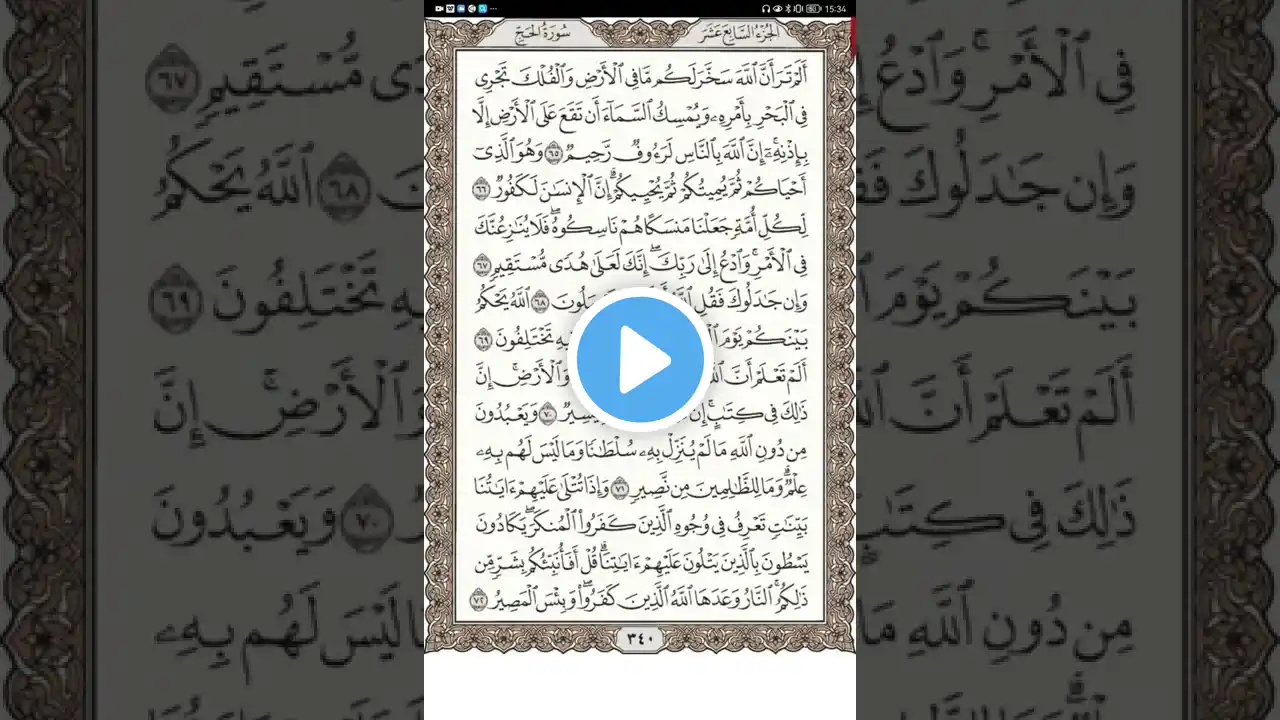 15:34
الجزء السابع عشر
سورة الحج
أَلَمْ تَرَ أَنَّ ٱللَّهَ سَخَّرَ لَكُم مَّا فِى ٱلْأَرْضِ وَٱلْفُلْكَ تَجْرِى
فِى ٱلْبَحْرِ بِأَمْرِهِۦ وَيُمْسِكُ ٱلسَّمَآءَ أَن تَقَعَ عَلَى ٱلْأَرْضِ إِلَّا
بِإِذْنِهِۦٓ ۗ إِنَّ ٱللَّهَ بِٱلنَّاسِ لَرَءُوفٌ رَّحِيمٌ ٦٥ وَهُوَ ٱلَّذِىٓ
أَحْيَاكُمْ ثُمَّ يُمِيتُكُمْ ثُمَّ يُحْيِيكُمْ ۗ إِنَّ ٱلْإِنسَـٰنَ لَكَفُورٌ ٦٦
لِّكُلِّ أُمَّةٍ جَعَلْنَا مَنسَكًا هُمْ نَاسِكُوهُ ۖ فَلَا يُنَـٰزِعُنَّكَ
فِى ٱلْأَمْرِ ۚ وَٱدْعُ إِلَىٰ رَبِّكَ ۖ إِنَّكَ لَعَلَىٰ هُدًى مُّسْتَقِيمٍ ٦٧
وَإِن جَـٰدَلُوكَ فَقُلِ ٱللَّهُ ٦٨ ٱللَّهُ يَحْكُمُ
بَيْنَكُمْ يَوْمَ تَخْتَلِفُونَ ٦٩
أَلَمْ تَعْلَمْ أَنَّ وَٱلْأَرْضِ ۗ إِنَّ
ذَٰلِكَ فِى كِتَـٰبٍ ۚ إِنَّ يَسِيرٌ ٧٠ وَيَعْبُدُونَ
مِن دُونِ ٱللَّهِ مَا لَمْ يُنَزِّلْ بِهِۦ سُلْطَـٰنًا وَمَا لَيْسَ لَهُم بِهِۦ
عِلْمٌ ۗ وَمَا لِلظَّـٰلِمِينَ مِن نَّصِيرٍ ٧١ وَإِذَا تُتْلَىٰ عَلَيْهِمْ ءَايَـٰتُنَا
بَيِّنَـٰتٍ تَعْرِفُ فِى وُجُوهِ ٱلَّذِينَ كَفَرُوا۟ ٱلْمُنكَرَ ۖ يَكَادُونَ
يَسْطُونَ بِٱلَّذِينَ يَتْلُونَ عَلَيْهِمْ ءَايَـٰتِنَا ۗ قُلْ أَفَأُنَبِّئُكُم بِشَرٍّ مِّن
ذَٰلِكُمُ ۗ ٱلنَّارُ وَعَدَهَا ٱللَّهُ ٱلَّذِينَ كَفَرُوا۟ ۖ وَبِئْسَ ٱلْمَصِيرُ ٧٢
٣٤٠